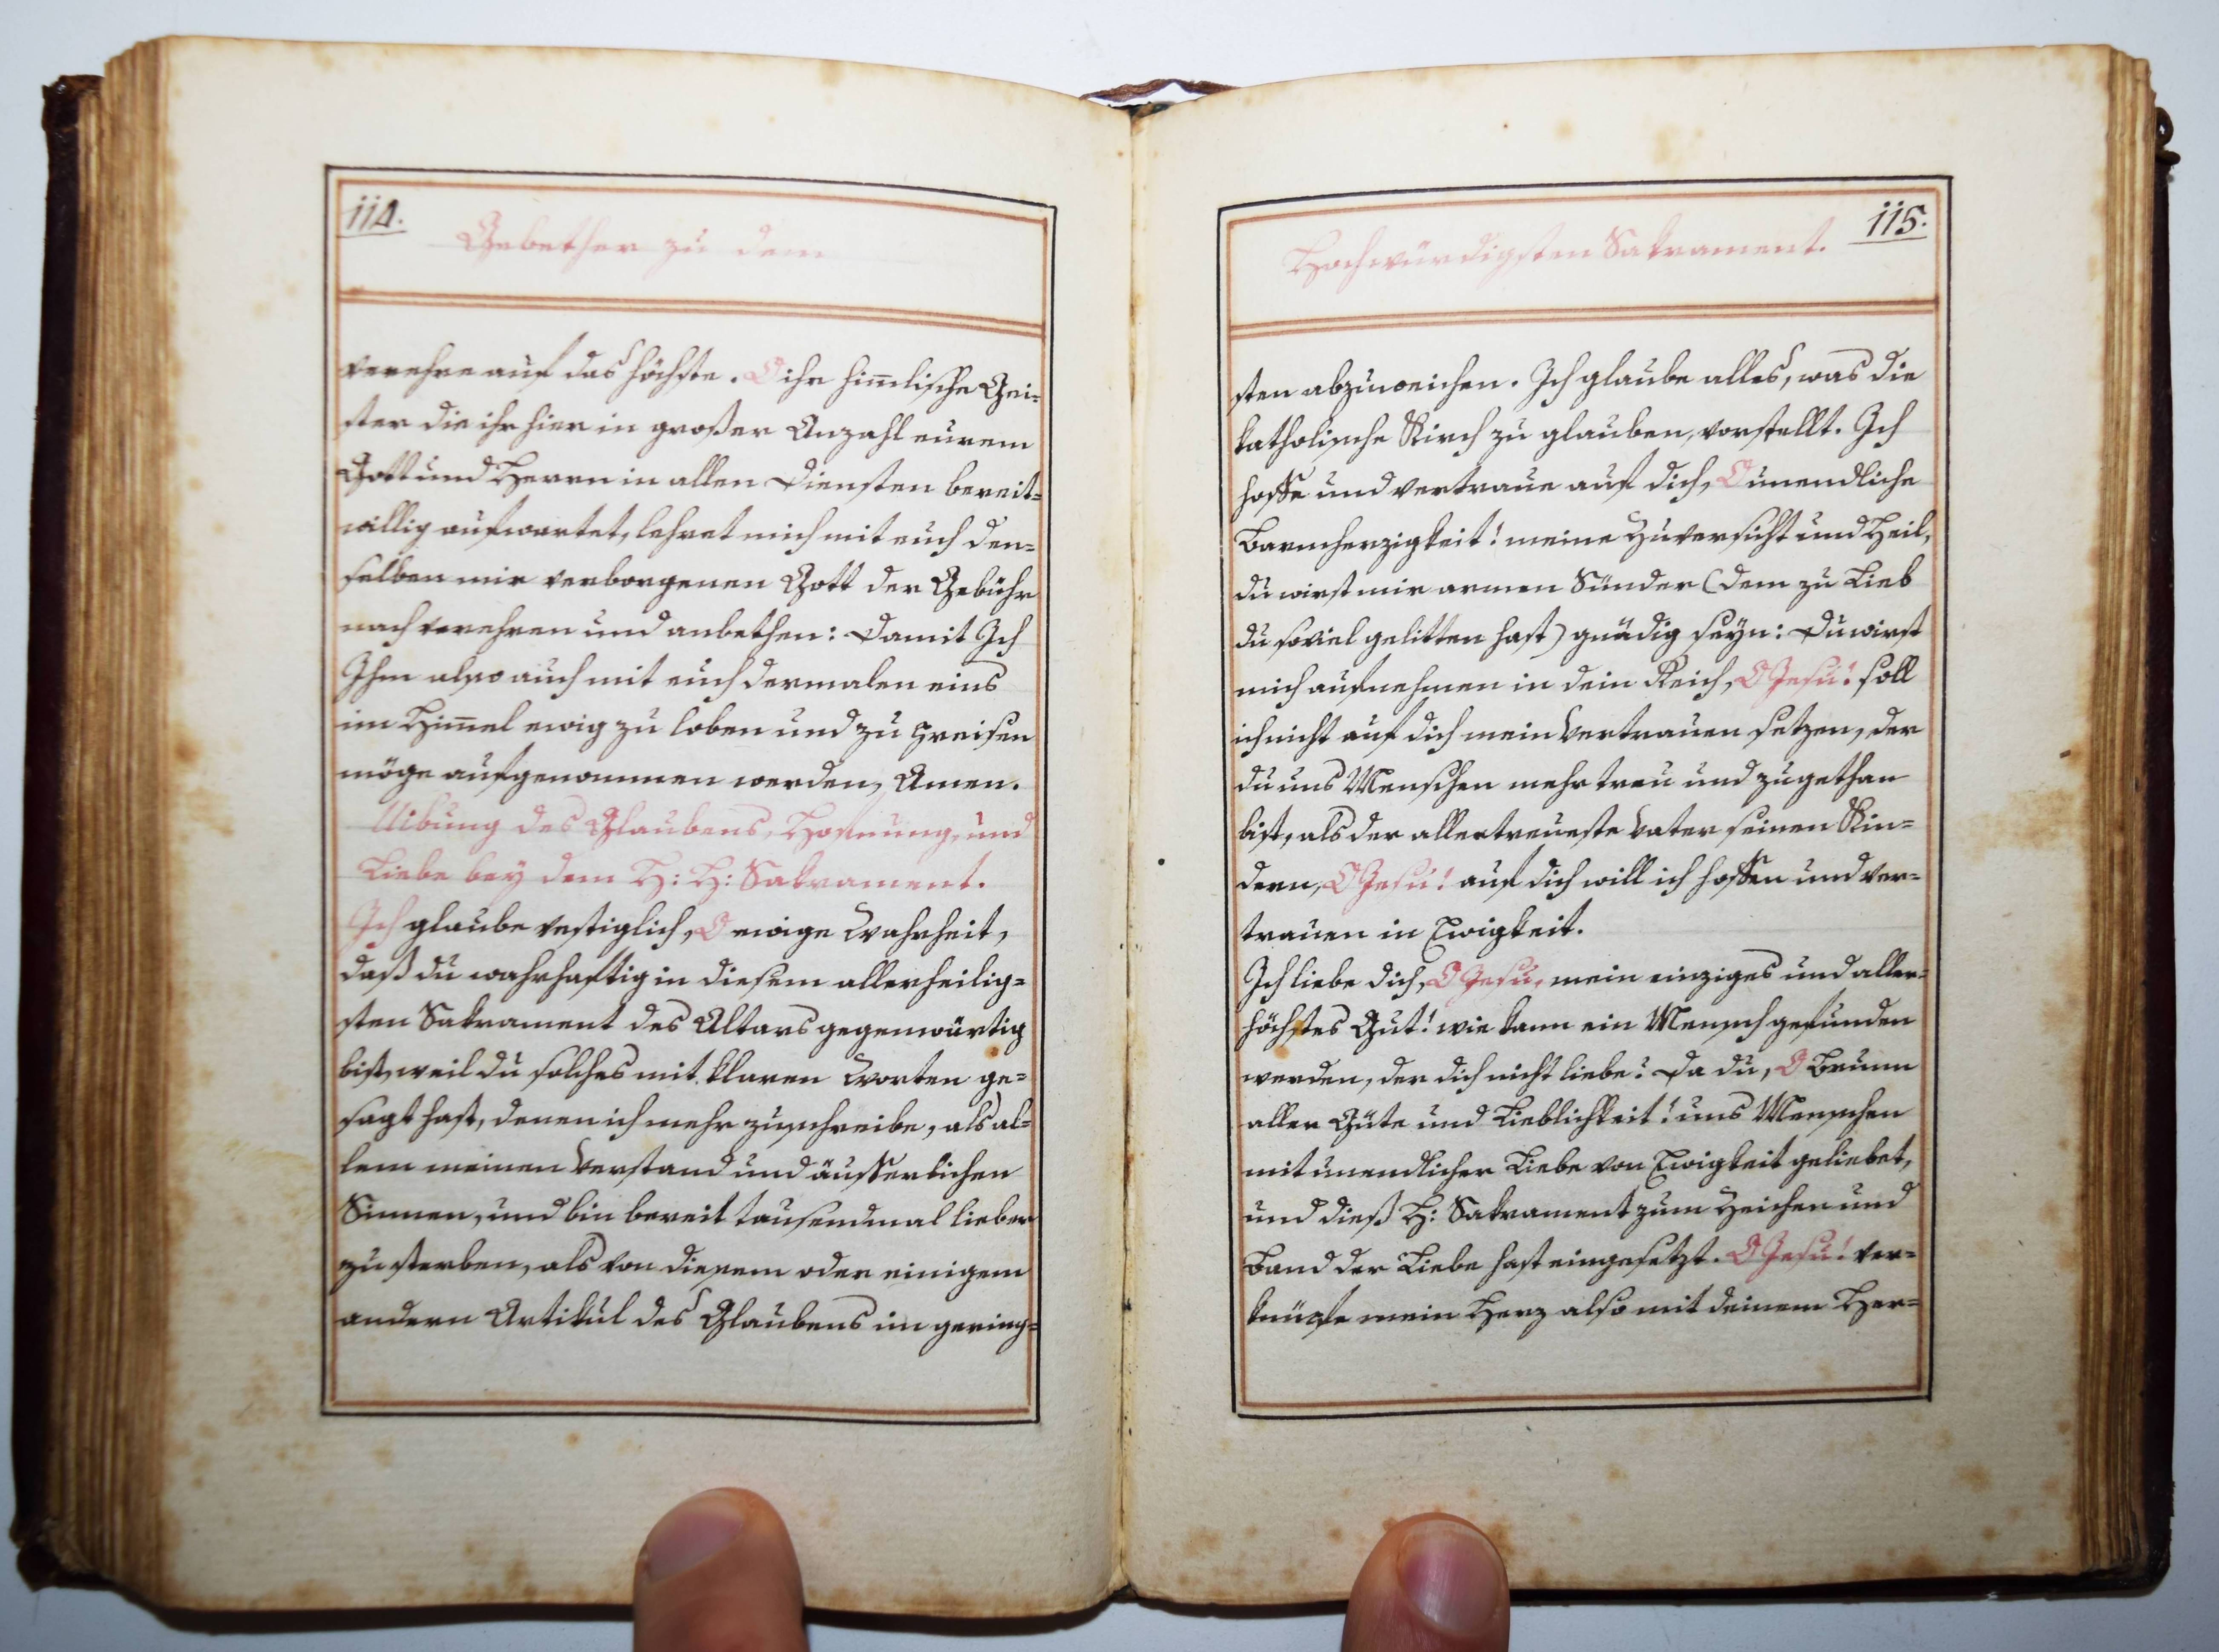 114.
Gebether zu dem
verehre auf das höchste. O ihr him̄lische Gei=
ster die ihr hier in großer Anzahl eurem
Gott und Herrn in allen Diensten bereit=
willig aufwartet, lehret mich mit euch den=
selben mir verborgenen Gott der Gebühr
nach verehren und anbethen: Damit Ich
Ihm also auch mit euch dermalen eins
im Him̄el ewig zu loben und zu preisen
möge aufgenommen werden, Amen.
Uibung des Glaubens, Hofnung, und
Liebe bey dem H: H: Sakrament.
Ich glaube vestiglich, O ewige Wahrheit,
daß du wahrhaftig in diesem allerheilig=
sten Sakrament des Altars gegenwärtig
bist, weil du solches mit klaren Worten ge=
sagt hast, denen ich mehr zuschreibe, als al=
lem meinen Verstand und äusserlichen
Sinnen, und bin bereit tausendmal lieber
zu sterben, als von diesem oder einigem
andern Artikul des Glaubens im gering=
115.
Hochwürdigsten Sakrament.
sten abzuweichen. Ich glaube alles, was die
katholische Kirch zu glauben, vorstellt. Ich
hoffe und vertraue auf dich, O unendliche
Barmherzigkeit! meine Zuversicht und Heil,
du wirst mir armen Sünder (dem zu Lieb
du soviel gelitten hast) gnädig seyn: Du wirst
mich aufnehmen in dein Reich, O Jesu! soll
ich nicht auf dich mein Vertrauen setzen, der
du uns Menschen mehr treu und zugethan
bist, als der allertreueste Vater seinen Kin=
dern, O Jesu! auf dich will ich hoffen und ver=
trauen in Ewigkeit.
Ich liebe dich, O Jesu, mein einziges und aller=
höchstes Gut! wie kann ein Mensch gefunden
werden, der dich nicht liebe? Da du, O Brunn
aller Güte und Lieblichkeit! uns Menschen
mit unendlicher Liebe von Ewigkeit geliebet,
und dieß H: Sakrament zum Zeichen und
Band der Liebe hast eingesetzt. O Jesu! ver=
knüpfe mein Herz also mit deinem Her=